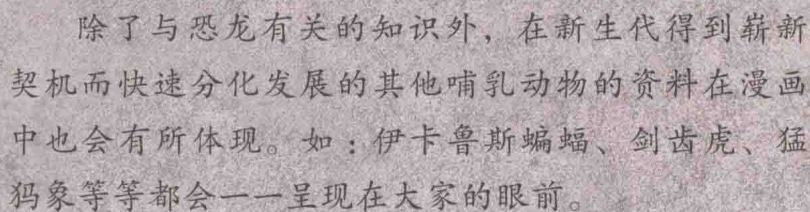 除了与恐龙有关的知识外，在新生代得到崭新
契机而快速分化发展的其他哺乳动物的资料在漫画
中也会有所体现。如：伊卡鲁斯蝙蝠、剑齿虎、猛
犸象等等都会一一呈现在大家的眼前。